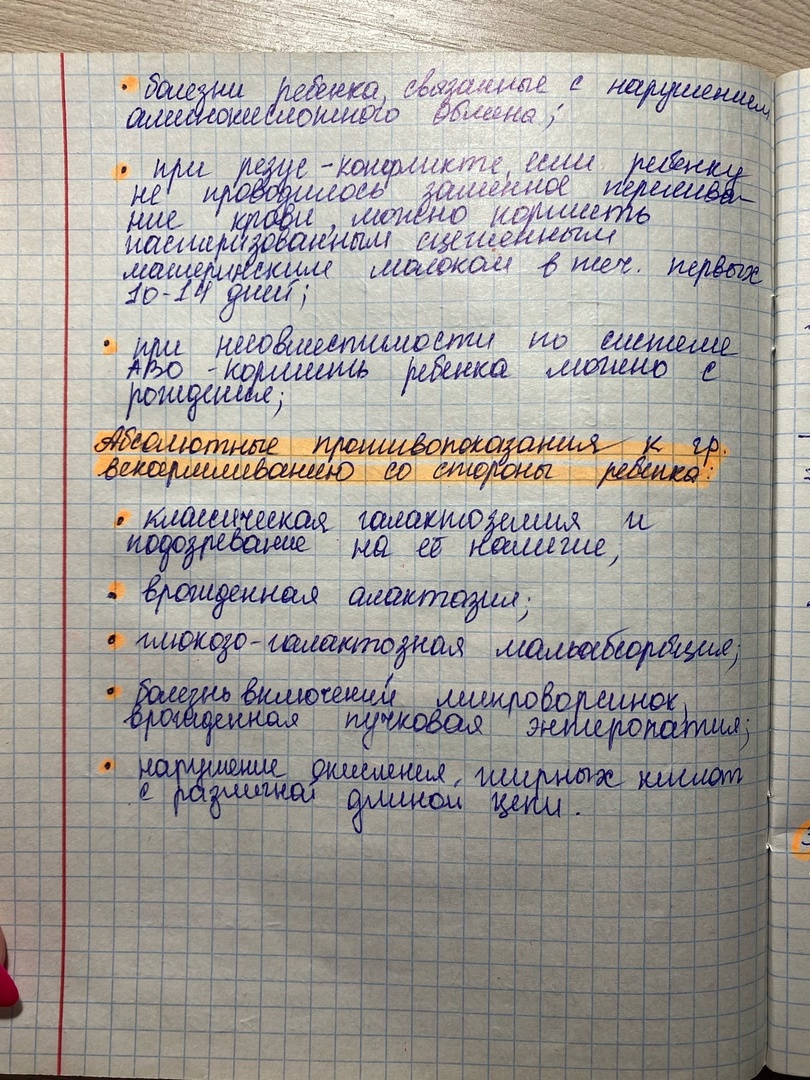 • болезни ребенка, связанные с нарушением
аминокислотного обмена;
• при резус-конфликте, если ребенку
не проводилось заменное перелива-
ние крови, можно кормить
пастеризованным сцеженным
материнским молоком в теч. первых
10-14 дней;
• при несовместимости по системе
АВО - кормить ребенка можно с
рождения;
Абсолютные противопоказания к гр.
вскармливанию со стороны ребенка:
• классическая галактоземия и
подозревание на её наличие,
• врожденная алактазия;
• глюкозо-галактозная мальабсорбция;
• болезнь включений микроворсинок,
врожденная пучковая энтеропатия;
• нарушение окисления жирных кислот
с различной длиной цепи.